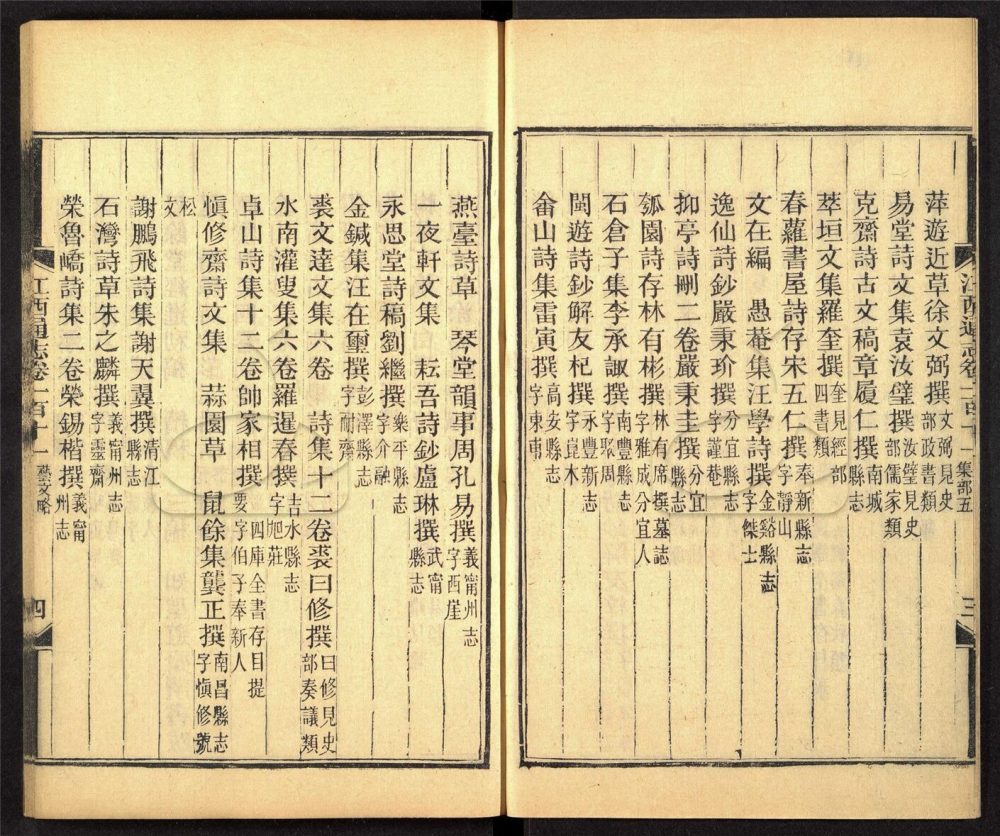 江西通志卷一百十一 集部五 三
萍遊近草徐文弼撰文弼見史部政書類
易堂詩文集袁汝璧撰汝璧見史部儒家類
克齋詩古文稿章履仁撰南城縣志
萃垣文集羅奎撰奎見經部四書類
春蘿書屋詩存宋五仁撰奉新縣志字靜山
文在編 愚菴集汪學詩撰金谿縣志字傑士
逸仙詩鈔嚴秉玠撰分宜縣志字謹菴
抑亭詩刪二卷嚴秉圭撰分宜縣志
瓠園詩存林有彬撰林有席撰墓誌字雅成分宜人
石倉子集李承諏撰南豐縣志字聚周
閩遊詩鈔解友杞撰永豐新志字崑木
畬山詩集雷寅撰高安縣志字東甫
燕臺詩草 琴堂韻事周孔易撰義甯州志字西崖
一夜軒文集 耘吾詩鈔盧琳撰武甯縣志
永思堂詩稿劉繼撰樂平縣志字介融
金鍼集汪在璽撰彭澤縣志字耐齋
裘文達文集六卷 詩集十二卷裘曰修撰曰修見史部奏議類
水南灌叟集六卷羅暹春撰吉水縣志字旭莊
卓山詩集十二卷帥家相撰四庫全書存目提要字伯子奉新人
愼修齋詩文集 蒜園草 鼠餘集龔正撰南昌縣志字愼修號
松文
謝鵬飛詩集謝天翼撰清江縣志
石灣詩草朱之麟撰義甯州志字靈齋
榮魯嶠詩集二卷榮錫楷撰義甯州志
江西通志卷一百十一 藝文略 四